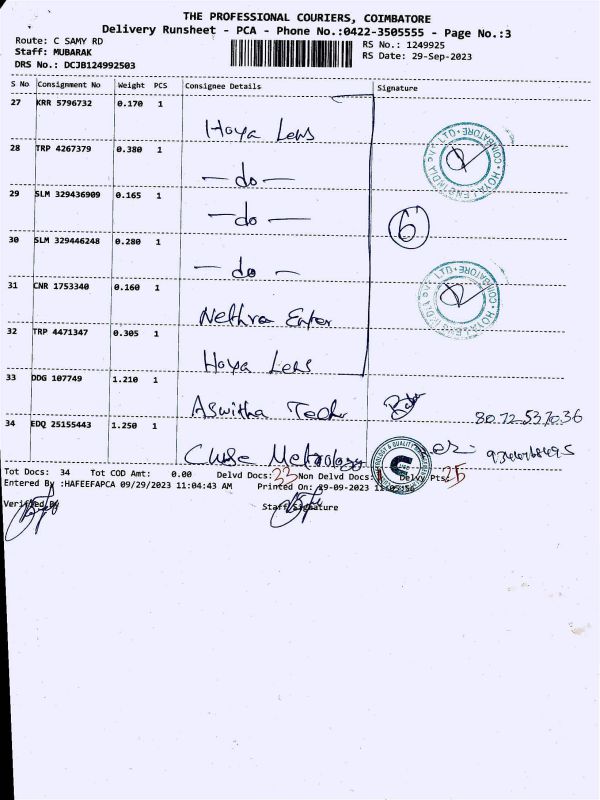 THE PROFESSIONAL COURIERS, COIMBATORE
Delivery Runsheet - PCA - Phone No.:0422-3505555 - Page No.:3
Route: C SAMY RD
Staff: MUBARAK
DRS No.: DCJB124992503
RS No.: 1249925
RS Date: 29-Sep-2023
S No Consignment No Weight PCS Consignee Details Signature
27 KRR 5796732 0.170 1 Hoya Lens
28 TRP 4267379 0.380 1 — do —
29 SLM 329436909 0.165 1 — do —
6
30 SLM 329446248 0.280 1 — do —
31 CNR 1753340 0.160 1 Nethra Enter
32 TRP 4471347 0.305 1 Hoya Lens
33 DDG 107749 1.210 1 Aswitha Tech 8072537036
34 EDQ 25155443 1.250 1 Metrology
Tot Docs: 34 Tot COD Amt: 0.00 Delvd Docs: 33 Non Delvd Docs: 1 Delvy Pts: 25
Entered By :HAFEEFAPCA 09/29/2023 11:04:43 AM Printed On: 29-09-2023
Verified By
Staff Signature
HOYA LENS INDIA PVT LTD • COIMBATORE
HOYA LENS INDIA PVT LTD • COIMBATORE